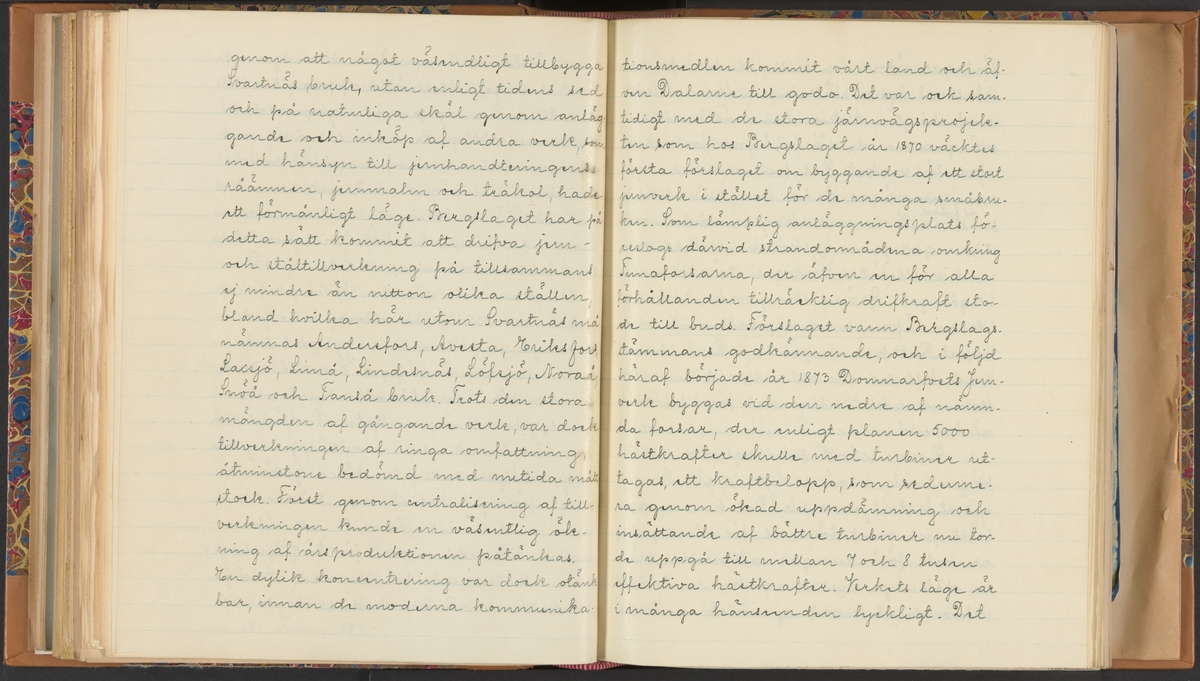 genom att något väsendligt tillbygga
Svartnäs bruk, utan enligt tidens sed
och på naturliga skäl genom anläg-
gande och inköp af andra verk, som
med hänsyn till jernhandteringens
råämnen, jernmalm och träkol, hade
ett förmånligt läge. Bergslaget har på
detta sätt kommit att drifva jern-
och ståltillverkning på tillsammans
ej mindre än nitton olika ställen,
bland hvilka här utom Svartnäs må
nämnas Andersfors, Avesta, Eriksfors,
Lacsjö, Limå, Lindesnäs, Löfsjö, Noraå,
Snöå och Fanså bruk. Trots den stora
mängden af gångande verk, var dock
tillverkningen af ringa omfattning,
åtminstone bedömd med nutida mått-
stock. Först genom centralisering af till-
verkningen kunde en väsentlig ök-
ning af årsproduktionen påtänkas.
En dylik koncentrering var dock otänk
bar, innan de moderna kommunika-
tionsmedlen kommit vårt land och äf-
ven Dalarne till godo. Det var ock sam-
tidigt med de stora järnvägsprojek-
ten som hos Bergslaget år 1870 väcktes
första förslaget om byggande af ett stort
jernverk i stället för de många småbru-
ken. Som lämplig anläggningsplats fö-
reslogs därvid strandområdena omkring
Tunaforsarna, der äfven en för alla
förhållanden tillräcklig drifkraft sto-
de till buds. Förslaget vann Bergslags-
stämmans godkännande, och i följd
häraf började år 1873 Domnarfvets Jern-
verk byggas vid den nedre af nämn-
da forsar, der enligt planen 5000
hästkrafter skulle med turbiner ut-
tagas, ett kraftbelopp, som sederme-
ra genom ökad uppdämning och
insättande af bättre turbiner nu tor-
de uppgå till mellan 7 och 8 tusen
effektiva hästkrafter. Verkets läge är
i många hänseenden lyckligt. Det